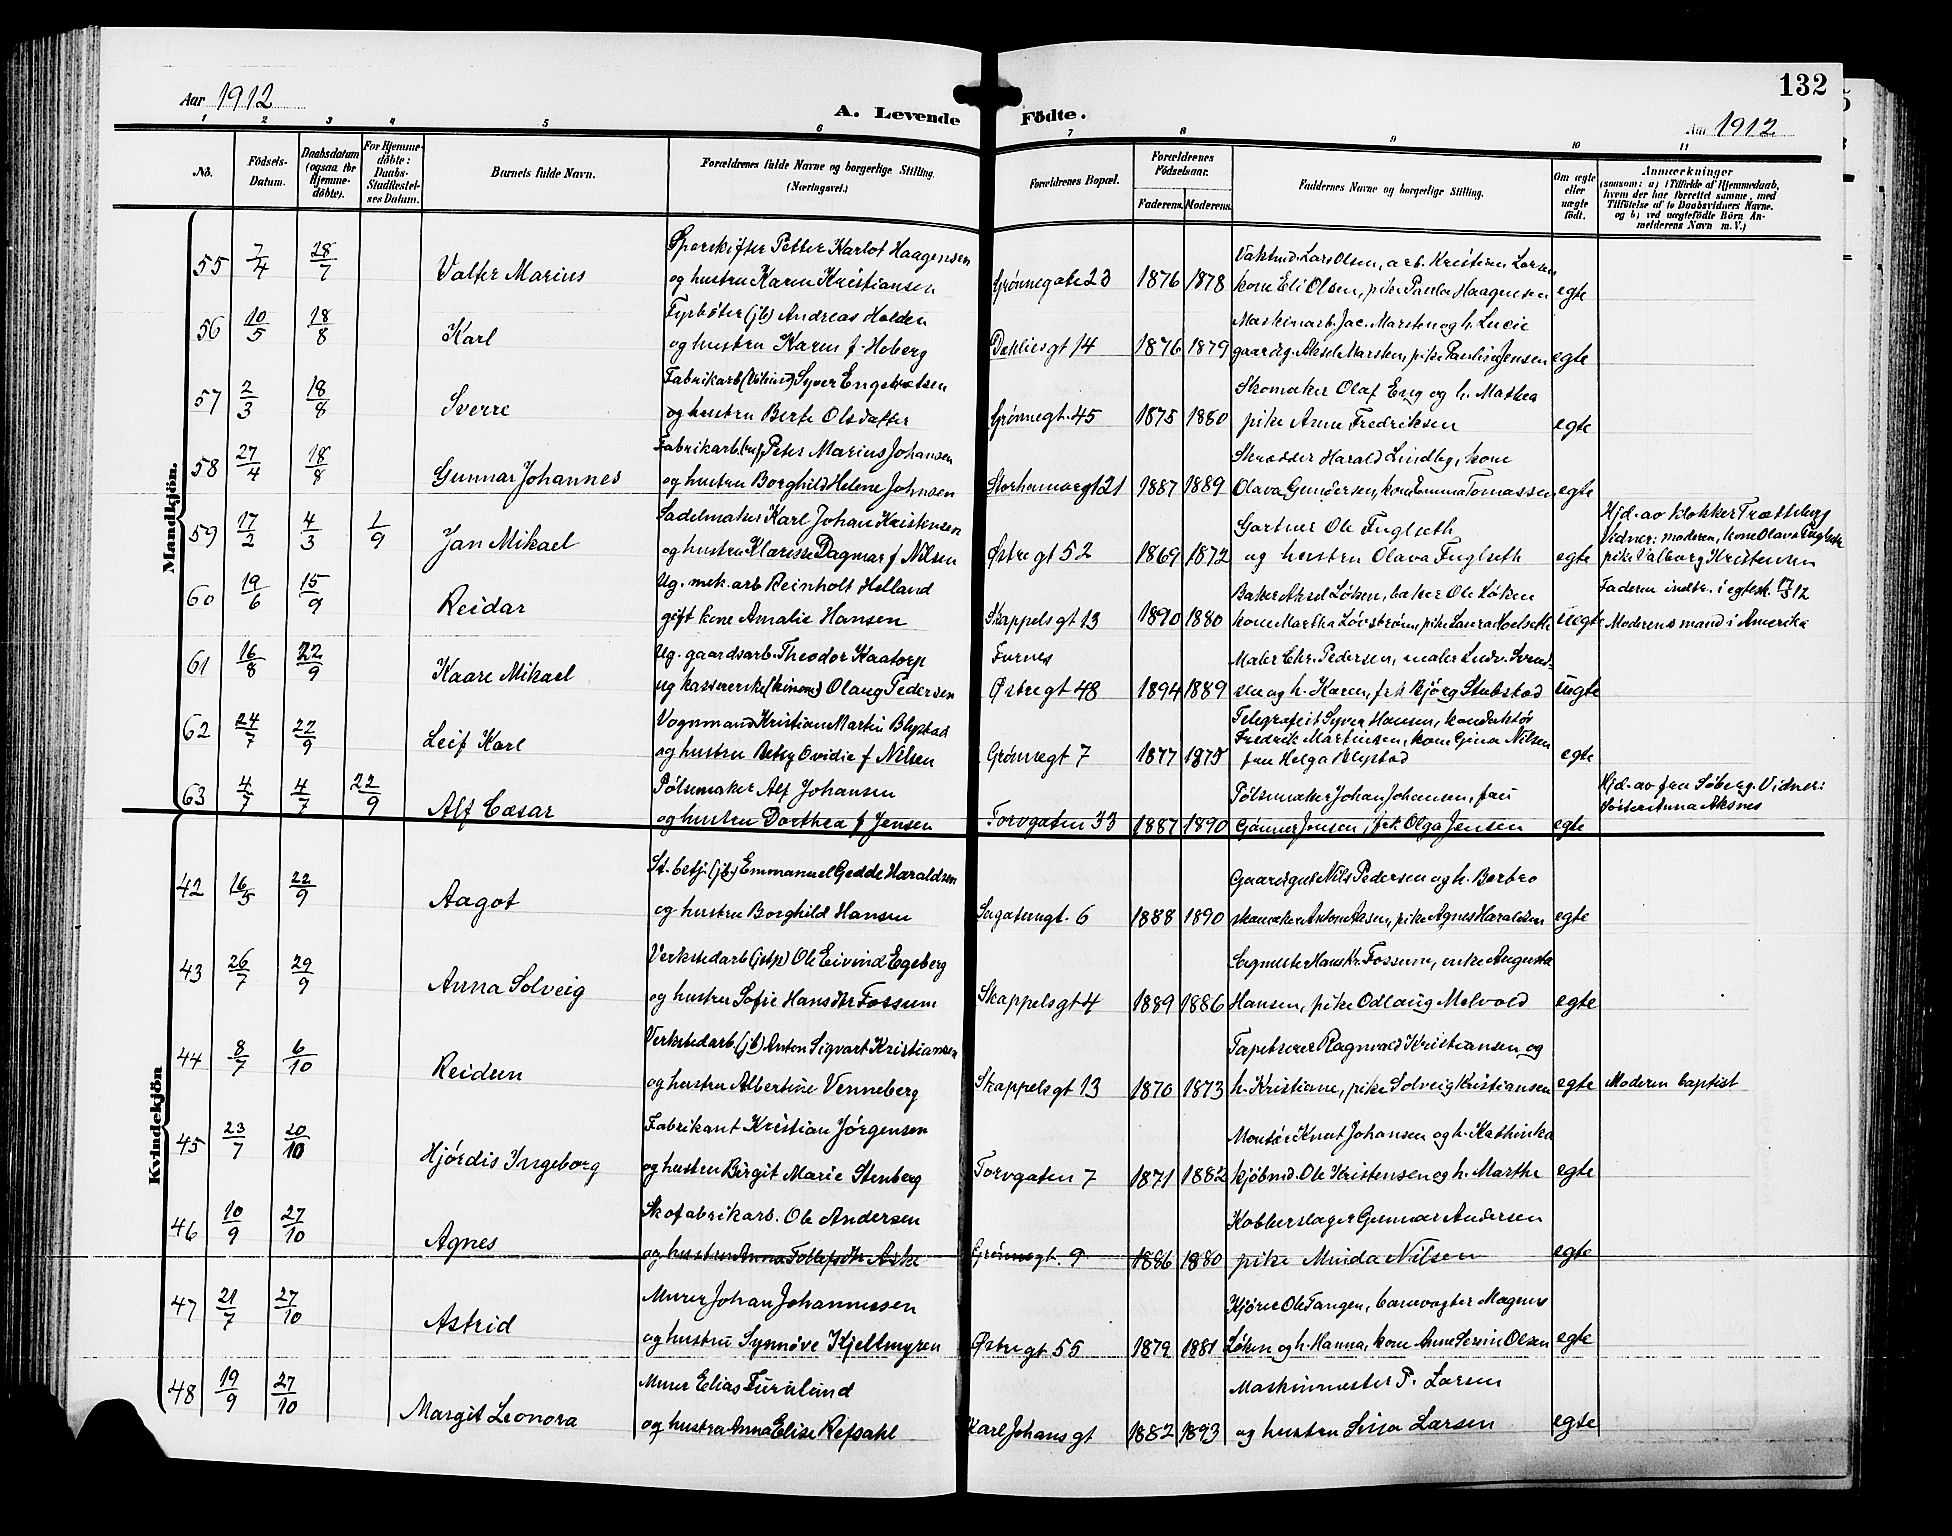 132
Aar 1912
A. Levende Födte.
Aar 1912
1 2 3 4 5 6 7 8 9 10 11
No. Födsels-Datum. Daabsdatum (ogsaa for Hjemme-döbte). For Hjemme-döbte: Daabs-Stadfæstel-ses Datum. Barnets fulde Navn. Forældrenes fulde Navne og borgerlige Stilling. (Næringsvei.) Forældrenes Bopæl. Forældrenes Födselsaar. Faderens. Moderens. Faddernes Navne og borgerlige Stilling. Om ægte eller uægte födt. Anmærkninger (saasom: a) i Tilfælde af Hjemmedaab, hvem der har forrettet samme, med Tilföielse af to Daabsvidners Navne. og b) ved uægtefödte Börn An-melderens Navn m. V.)
Mandkjön.
55 7/4 28/7 Valter Marius Sporskifter Petter Karlot Haagensen
og hustru Karen Kristiansen Grønnegate 23 1876 1878 Lars Olsen, arb. Kristian Larsen
kone Eli Olsen, pike Paula Haagensen egte
56 10/5 18/8 Karl Fyrbøter (jb) Andreas Holden
og hustru Karen f. Hoberg Dahliesgt 14 1876 1879 Maskinarb. Jac. Marsten og h. Lucie
gaardg. Aksel Marsten, pike Pauline Jensen egte
57 2/3 18/8 Sverre Fabrikarb. Syver Engebretsen
og hustru Berte Olsdatter Grønnegt. 45 1875 1880 Skomaker Olaf Eng og h. Mathea
pike Anne Fredriksen egte
58 27/4 18/8 Gunnar Johannes Fabrikarb. Peter Marius Johansen
og hustru Borghild Helene Johnsen Storhamargt 21 1887 1889 Skrædder Harald Lindby, kone
Olava Gundersen, kone Emma Tomassen egte
59 17/2 4/3 1/9 Jan Mikael Sadelmaker Karl Johan Kristensen
og hustru Klarisse Dagmar f. Nilsen Østregt 52 1869 1872 Gartner Ole Fuglseth
og hustru Olava Fuglseth egte Hjd. av klokker Trætteberg
Vidner: moderen, kone Olava Fuglseth
pike Valborg Kristensen
60 19/6 15/9 Reidar Ug. mek. arb Reinholt Helland
gift kone Amalie Hansen Skappelsgt 13 1890 1880 Baker Aksel Løken, baker Ole Løken
kone Martha Løvstrøm, pike Laura uegte Faderen indtr. i egtesk.
Moderens mand i Amerika
61 16/8 22/9 Kaare Mikael Ug. gaardsarb. Theodor Kaatorp
ug kassererske (kinom) Olaug Pedersen Furnes
Østregt 48 1894 1889 Maler Chr. Pedersen, maler Ludv. Svend-
sen og h. Karen, frk Bjørg Stubstad uegte
62 24/7 22/9 Leif Karl Vognmand Kristian Martin Blystad
og hustru Betsy Ovidie f. Nilsen Grønnegt 7 1877 1875 Telegrafist Syver Hansen, konduktør
Fredrik Martinsen, kone Gina Nilsen
fru Helga Blystad egte
63 4/7 4/7 22/9 Alf Cæsar Pølsemaker Alf Johansen
og hustru Dorthea f. Jensen Torvgaten 33 1887 1890 Pølsemaker Johan Johansen, fru
Jensen, frk. Olga Jensen egte Hjd. av fru Søberg. Vidner:
Anna Aksnes
Kvindekjön
42 16/5 22/9 Aagot St. betj. (jb) Emmanuel Gedde Haraldsen
og hustru Borghild Hansen Sagatungt. 6 1888 1890 Gaardgut Nils Pedersen og h. Berbro
skomaker Anton Aasen, pike Agnes Haraldsen egte
43 26/7 29/9 Anna Solveig Verkstedarb Ole Eivind Egeberg
og hustru Sofie Hansdtr Fossum Skappelsgt 4 1889 1886 Sagmester Hans Kr. Fossum, enke Augusta
Hansen, pike Odlaug Melvold egte
44 8/7 6/10 Reidun Verkstedarb. (jb) Anton Sigvart Kristiansen
og hustru Albertine Venneberg Skappelsgt 13 1870 1873 Tapetserer Ragnvald Kristiansen og
h. Kristiane, pike Solveig Kristiansen egte Moderen baptist
45 23/7 20/10 Hjørdis Ingeborg Fabrikant Kristian Jørgensen
og hustru Birgit Marie Stenberg Torvgaten 7 1871 1882 Montør Knut Johansen og h. Kathinka
kjøbmd. Ole Kristensen og h. Marthe egte
46 10/9 27/10 Agnes Skofabrikarb. Ole Andersen
og hustru Anna Aske Grønnegt. 9 1886 1880 Kobberslager Gunnar Andersen
pike Minda Nilsen egte
47 21/7 27/10 Astrid Murer Johan Johannessen
og hustru Synnøve Kjellmyren Østregt 55 1879 1881 Kjører Ole Tangen, banevogter Magnus
Løken og h. Hanna, kone Anne Olsen egte
48 19/9 27/10 Margit Leonora Murer Elias Furulund
og hustru Anna Elise Refsahl Karl Johans gt 1882 1893 Maskinmester P. Larsen
og hustru Larsen egte